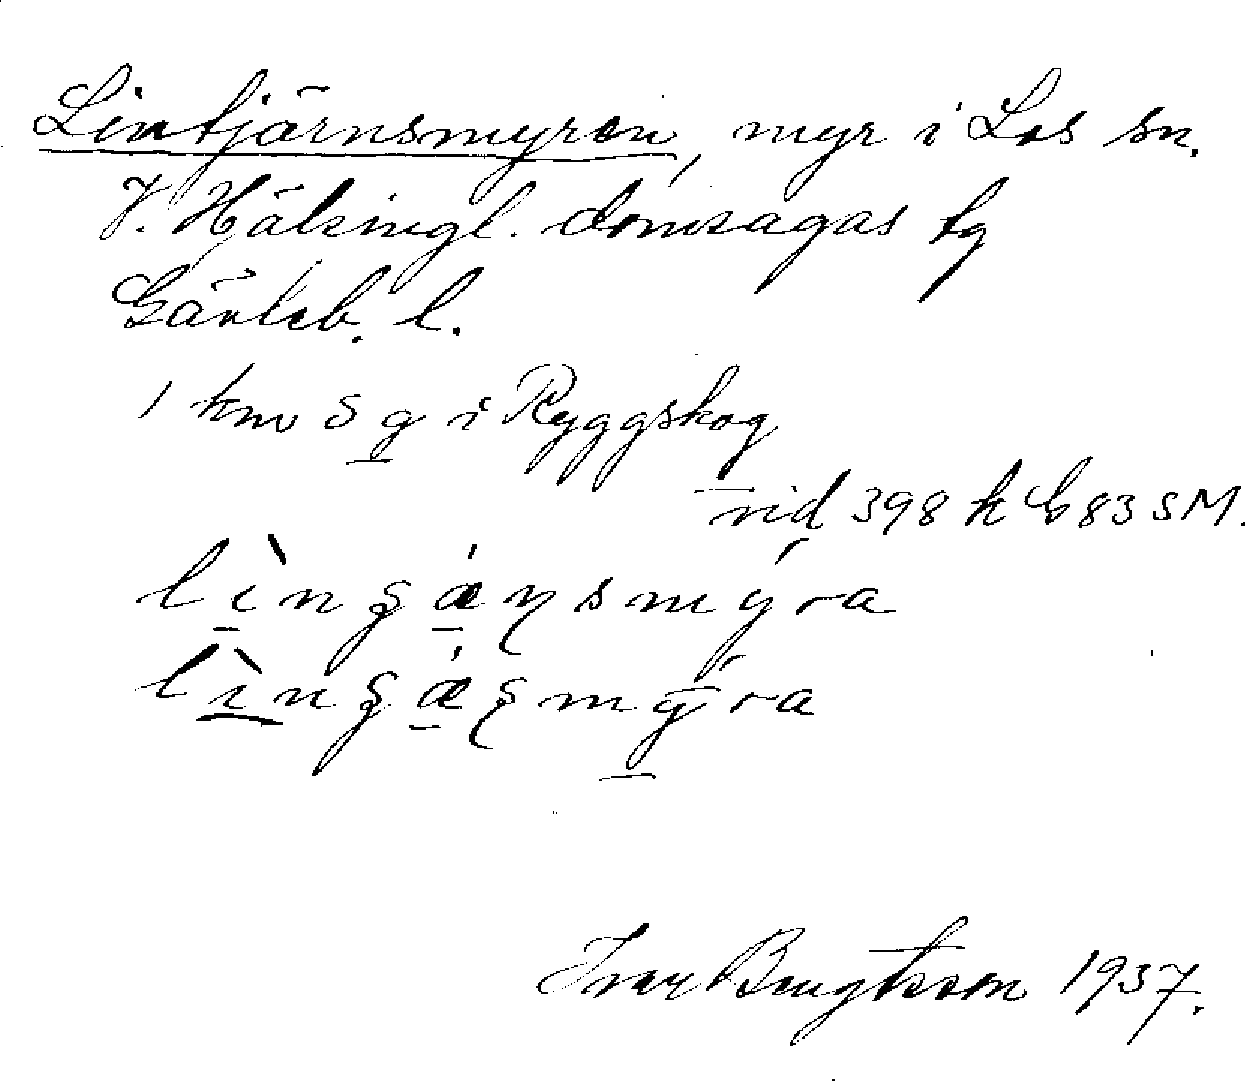 Lintjärnsmyren, myr i Los sn.
V. Hälsingl. domsagas tg
Gävleb. l.
1 km S g i Ryggskog
vid 398 k b 83 SM.
Ivar Bengtsson 1937.